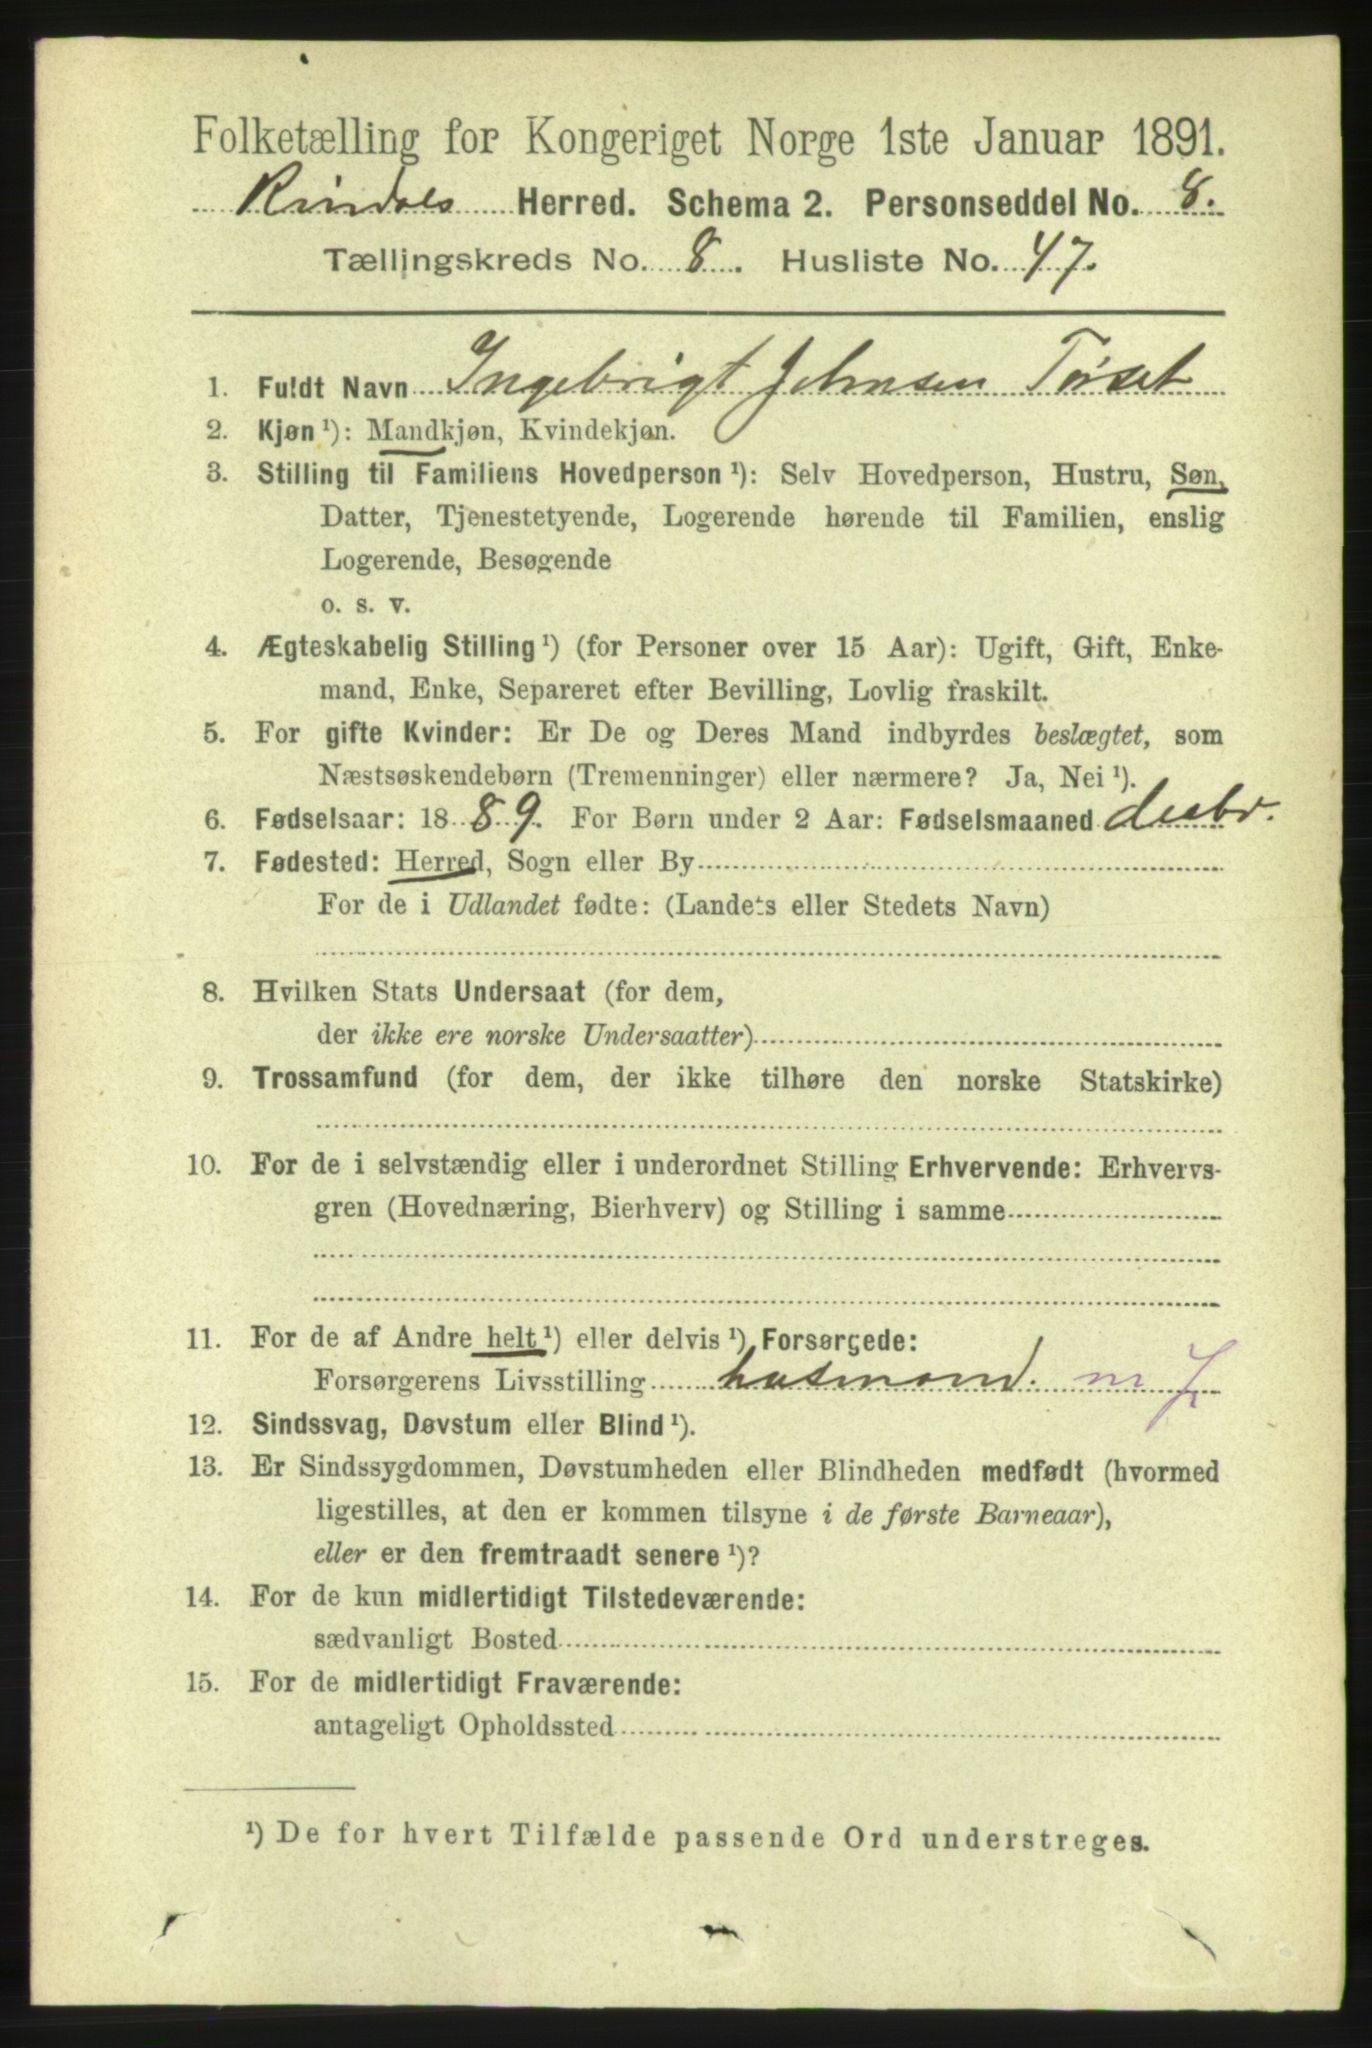 Folketælling for Kongeriget Norge 1ste Januar 1891.
Rindals Herred. Schema 2. Personseddel No. 8.
Tællingskreds No. 8. Husliste No. 47.
1. Fuldt Navn Ingebrigt Johnsen Tørset
2. Kjøn ¹): Mandkjøn, Kvindekjøn.
3. Stilling til Familiens Hovedperson ¹): Selv Hovedperson, Hustru, Søn,
Datter, Tjenestetyende, Logerende hørende til Familien, enslig
Logerende, Besøgende
o. s. v.
4. Ægteskabelig Stilling ¹) (for Personer over 15 Aar): Ugift, Gift, Enke-
mand, Enke, Separeret efter Bevilling, Lovlig fraskilt.
5. For gifte Kvinder: Er De og Deres Mand indbyrdes beslægtet, som
Næstsøskendebørn (Tremenninger) eller nærmere? Ja, Nei ¹).
6. Fødselsaar: 1889. For Børn under 2 Aar: Fødselsmaaned decbr.
7. Fødested: Herred, Sogn eller By
For de i Udlandet fødte: (Landets eller Stedets Navn)
8. Hvilken Stats Undersaat (for dem,
der ikke ere norske Undersaatter)
9. Trossamfund (for dem, der ikke tilhøre den norske Statskirke)
10. For de i selvstændig eller i underordnet Stilling Erhvervende: Erhvervs-
gren (Hovednæring, Bierhverv) og Stilling i samme
11. For de af Andre helt ¹) eller delvis ¹) Forsørgede:
Forsørgerens Livsstilling husmand. m J
12. Sindssvag, Døvstum eller Blind ¹).
13. Er Sindssygdommen, Døvstumheden eller Blindheden medfødt (hvormed
ligestilles, at den er kommen tilsyne i de første Barneaar),
eller er den fremtraadt senere ¹)?
14. For de kun midlertidigt Tilstedeværende:
sædvanligt Bosted
15. For de midlertidigt Fraværende:
antageligt Opholdssted
¹) De for hvert Tilfælde passende Ord understreges.